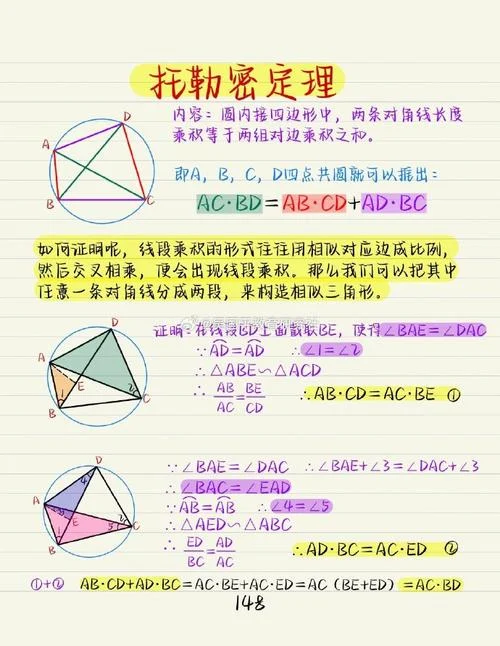 托勒密定理
内容：圆内接四边形中，两条对角线长度
乘积等于两组对边乘积之和。
即A，B，C，D四点共圆就可以推出：
AC·BD=AB·CD+AD·BC
A
B
C
D
如何证明呢，线段乘积的形式往往用相似对应边成比例，
然后交叉相乘，便会出现线段乘积。那么我们可以把其中
任意一条对角线分成两段，来构造相似三角形。
证明：在线段BD上面截取BE，使得∠BAE=∠DAC
∵AD=AD ∴∠1=∠2
∴△ABE∽△ACD
∴AB/AC=BE/CD ∴AB·CD=AC·BE ①
A
B
C
D
E
1
2
∵∠BAE=∠DAC ∴∠BAE+∠3=∠DAC+∠3
∴∠BAC=∠EAD
∵AB=AB ∴∠4=∠5
∴△AED∽△ABC
∴ED/BC=AD/AC ∴AD·BC=AC·ED ②
A
B
C
D
E
1
2
3
4
5
①+② AB·CD+AD·BC=AC·BE+AC·ED=AC（BE+ED）=AC·BD
148